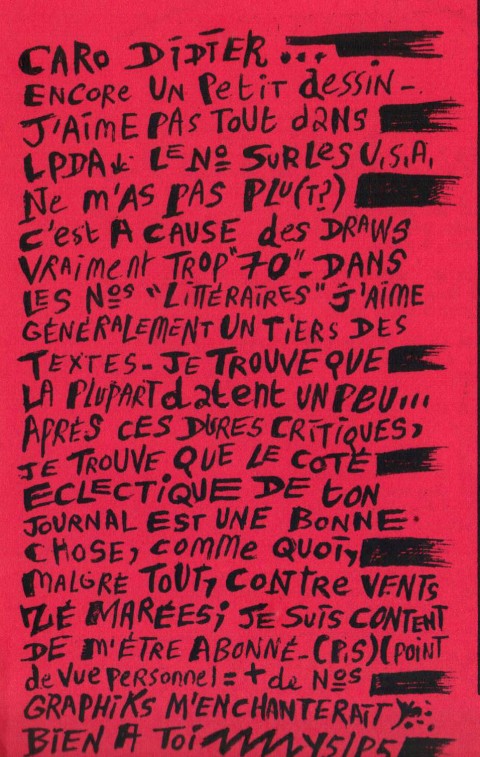 CARO DIDIER ...
ENCORE UN PETIT dESSIN -
J'AIME PAS TOUT dANS
LPDA↓. LE Nº SUR LES U.S.A.
NE M'AS PAS PLU(T?)
C'est A CAUSE des DRAWS
VRAIMENT TROP "70" - DANS
LES Nºs "LITTÉRAIRES" J'AIME
GÉNÉRALEMENT UN TIERS DES
TEXTES - JE TROUVE QUE
LA PLUPART datent UN PEU...
APRÈS CES DURES CRITIQUES,
JE TROUVE QUE LE COTÉ
ECLECTIQUE DE tON
JOURNAL EST UNE BONNE
CHOSE, COMME QUOI,
MALGRÉ TOUT, CONTRE VENTS
ZÉ MARÉES; JE SUIS CONTENT
DE M'ÊTRE ABONNÉ - (P.S) (POINT
de VUE PERSONNEL = + de Nºs
GRAPHIKS M'ENCHANTERAIT)
BIEN A TOI